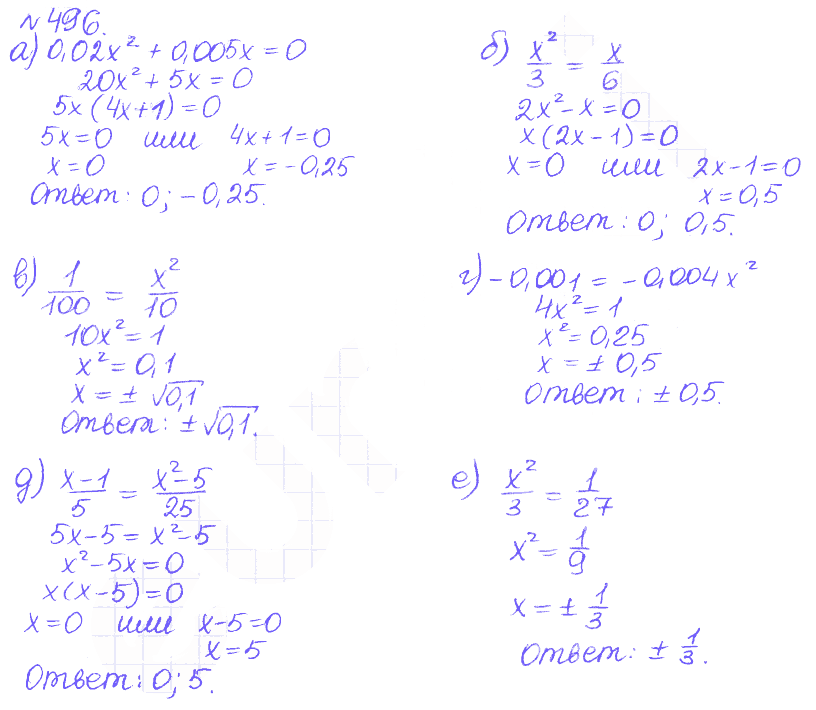 № 496.
а) 0,02x² + 0,005x = 0
20x² + 5x = 0
5x(4x+1) = 0
5x = 0 или 4x+1 = 0
x = 0 x = -0,25
Ответ: 0; -0,25.
б) x²/3 = x/6
2x² - x = 0
x(2x-1) = 0
x = 0 или 2x-1 = 0
x = 0,5
Ответ: 0; 0,5.
в) 1/100 = x²/10
10x² = 1
x² = 0,1
x = ± √0,1
Ответ: ± √0,1.
г) -0,001 = -0,004x²
4x² = 1
x² = 0,25
x = ± 0,5
Ответ: ± 0,5.
д) x-1/5 = x²-5/25
5x-5 = x²-5
x²-5x = 0
x(x-5) = 0
x = 0 или x-5 = 0
x = 5
Ответ: 0; 5.
е) x²/3 = 1/27
x² = 1/9
x = ± 1/3
Ответ: ± 1/3.